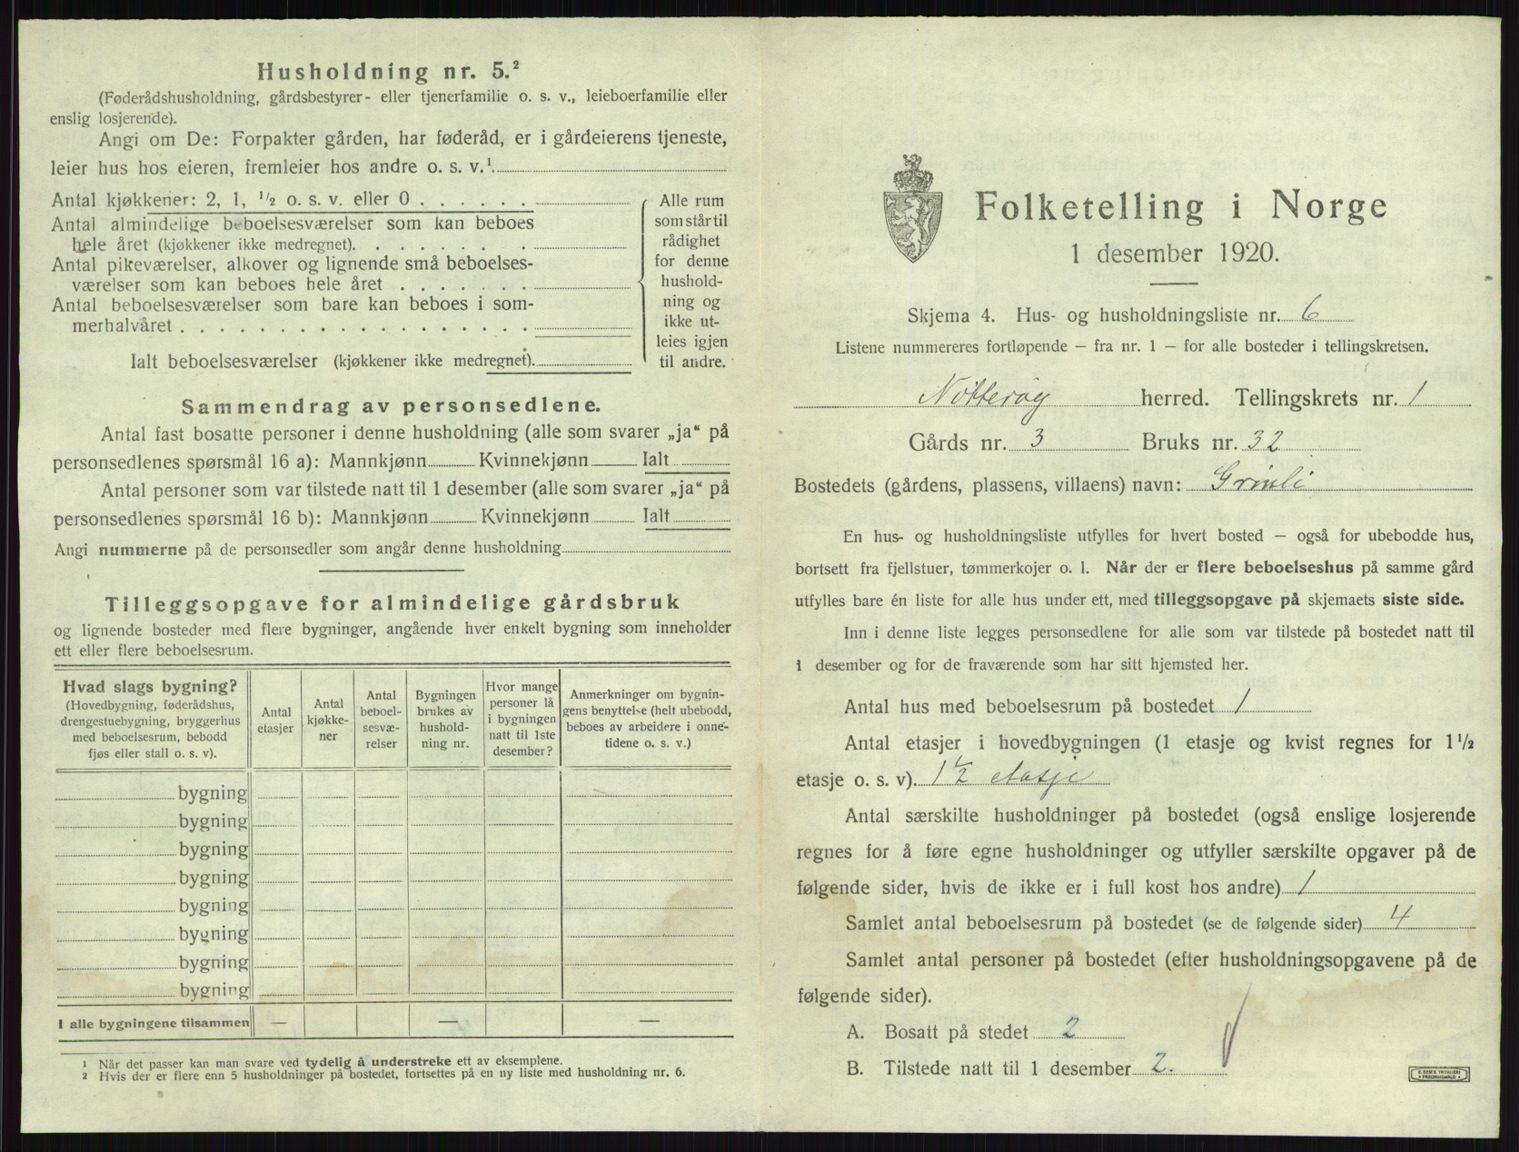 Husholdning nr. 5.²
(Føderådshusholdning, gårdsbestyrer- eller tjenerfamilie o. s. v., leieboerfamilie eller
enslig losjerende).
Angi om De: Forpakter gården, har føderåd, er i gårdeierens tjeneste,
leier hus hos eieren, fremleier hos andre o. s. v.¹
Antal kjøkkener: 2, 1, ½ o. s. v. eller 0
Antal almindelige beboelsesværelser som kan beboes
hele året (kjøkkener ikke medregnet).
Antal pikeværelser, alkover og lignende små beboelses-
værelser som kan beboes hele året
Antal beboelsesværelser som bare kan beboes i som-
merhalvåret
Ialt beboelsesværelser (kjøkkener ikke medregnet).
Alle rum
som står til
rådighet
for denne
hushold-
ning og
ikke ut-
leies igjen
til andre.
Sammendrag av personsedlene.
Antal fast bosatte personer i denne husholdning (alle som svarer „ja“ på
personsedlenes spørsmål 16 a): Mannkjønn Kvinnekjønn Ialt
Antal personer som var tilstede natt til 1 desember (alle som svarer „ja“ på
personsedlenes spørsmål 16 b): Mannkjønn Kvinnekjønn Ialt
Angi nummerne på de personsedler som angår denne husholdning
Tilleggsopgave for almindelige gårdsbruk
og lignende bosteder med flere bygninger, angående hver enkelt bygning som inneholder
ett eller flere beboelsesrum.
Hvad slags bygning?
(Hovedbygning, føderådshus,
drengestuebygning, bryggerhus
med beboelsesrum, bebodd
fjøs eller stall o. s. v).
Antal
etasjer
Antal
kjøkke-
ner
Antal
beboel-
sesvæ-
relser
Bygningen
brukes av
hushold-
ning nr.
Hvor mange
personer lå
i bygningen
natt til 1ste
desember?
Anmerkninger om bygnin-
gens benyttelse (helt ubebodd,
beboes av arbeidere i onne-
tidene o. s. v.)
bygning
bygning
bygning
bygning
bygning
bygning
bygning
bygning
I alle bygningene tilsammen — — —
¹ Når det passer kan man svare ved tydelig å understreke ett av eksemplene.
² Hvis der er flere enn 5 husholdninger på bostedet, fortsettes på en ny liste med husholdning nr. 6.
Folketelling i Norge
1 desember 1920.
Skjema 4. Hus- og husholdningsliste nr. 6
Listene nummereres fortløpende — fra nr. 1 — for alle bosteder i tellingskretsen.
Nøtterøy herred. Tellingskrets nr. 1
Gårds nr. 3 Bruks nr. 32
Bostedets (gårdens, plassens, villaens) navn: Grinli
En hus- og husholdningsliste utfylles for hvert bosted — også for ubebodde hus,
bortsett fra fjellstuer, tømmerkojer o. l. Når der er flere beboelseshus på samme gård
utfylles bare én liste for alle hus under ett, med tilleggsopgave på skjemaets siste side.
Inn i denne liste legges personsedlene for alle som var tilstede på bostedet natt til
1 desember og for de fraværende som har sitt hjemsted her.
Antal hus med beboelsesrum på bostedet 1
Antal etasjer i hovedbygningen (1 etasje og kvist regnes for 1½
etasje o. s. v). 1½ etasje
Antal særskilte husholdninger på bostedet (også enslige losjerende
regnes for å føre egne husholdninger og utfyller særskilte opgaver på de
følgende sider, hvis de ikke er i full kost hos andre) 1
Samlet antal beboelsesrum på bostedet (se de følgende sider) 4
Samlet antal personer på bostedet (efter husholdningsopgavene på de
følgende sider).
A. Bosatt på stedet 2
B. Tilstede natt til 1 desember 2.